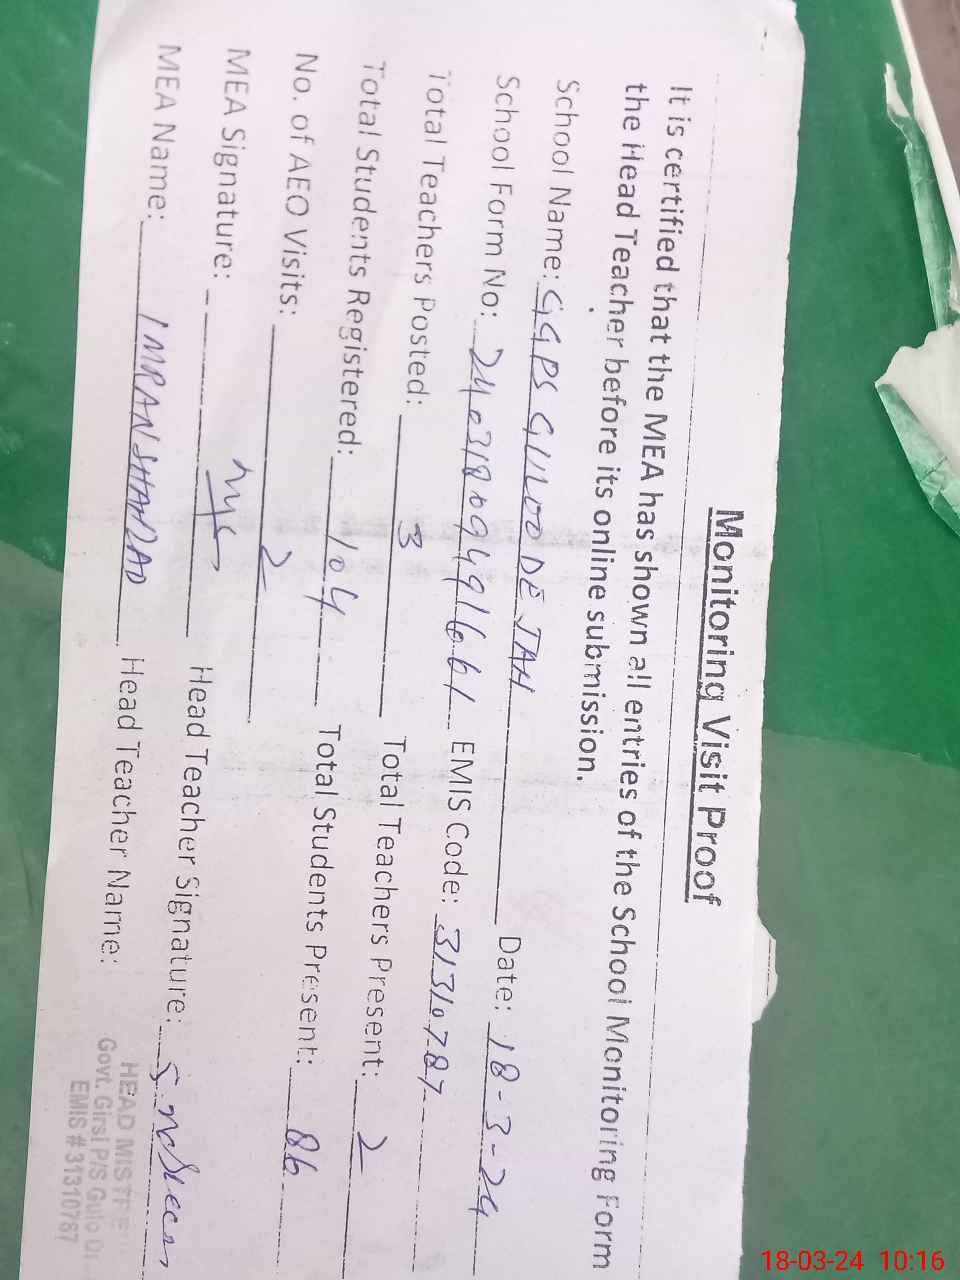 Monitoring Visit Proof
It is certified that the MEA has shown all entries of the School Monitoring Form
the Head Teacher before its online submission.
School Name: GGPS GULOO DE JAH Date: 18-3-24
School Form No: 240318094491661 EMIS Code: 31310787
Total Teachers Posted: 3 Total Teachers Present: 2
Total Students Registered: 104 Total Students Present: 86
No. of AEO Visits: 2
MEA Signature: Head Teacher Signature:
MEA Name: IMRAN SHAHZAD Head Teacher Name:
HEAD MISTRE
Govt. Girsl P/S Gulo
EMIS # 31310787
18-03-24 10:16